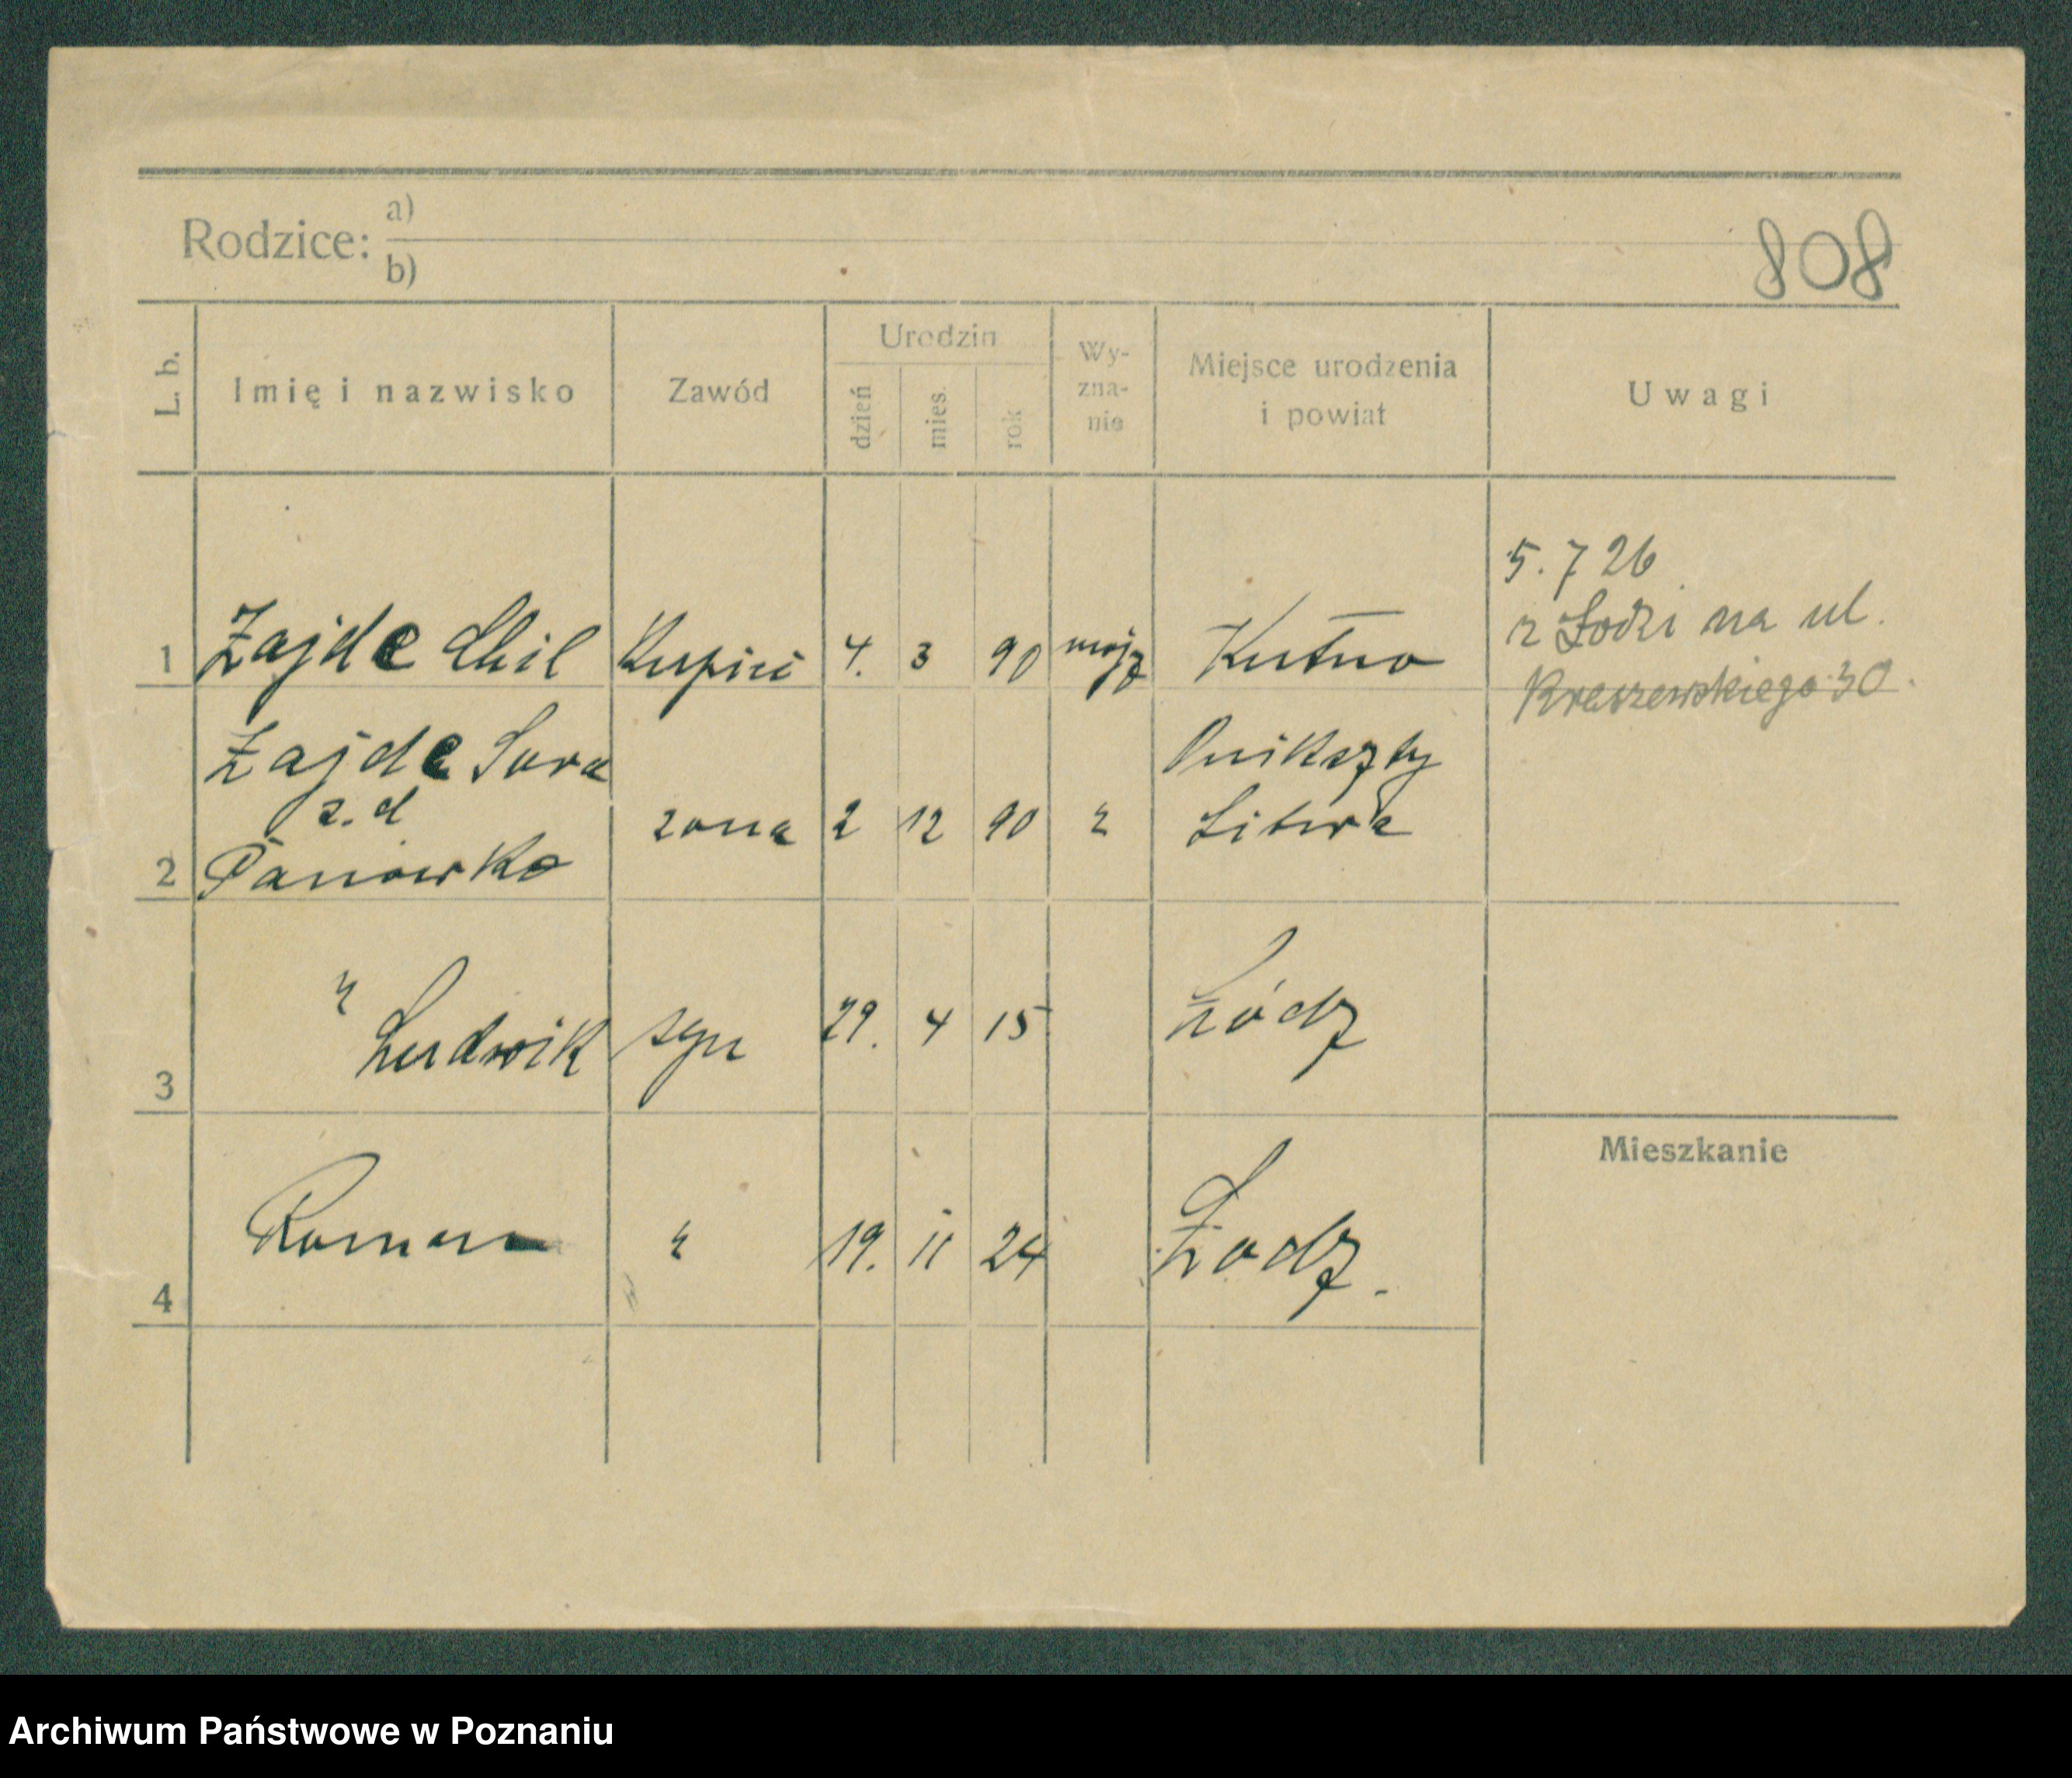 Rodzice: a)
b)
808
L. b.
Imię i nazwisko
Zawód
Urodzin
dzień
mies.
rok
Wy-
zna-
nie
Miejsce urodzenia
i powiat
Uwagi
1 Zajde Chil Kupiec 4. 3 90 mojż Kutno
5. 7 26
z Łodzi na ul.
Kraszewskiego 30.
Zajde Sura
z. d
2 Panowko zona 2 12 90 " Onikszty
Litwa
3 " Ludwik syn 29. 4 15 Łódz
4 Roman " 19. 11 24 Łodz.
Mieszkanie
Archiwum Państwowe w Poznaniu